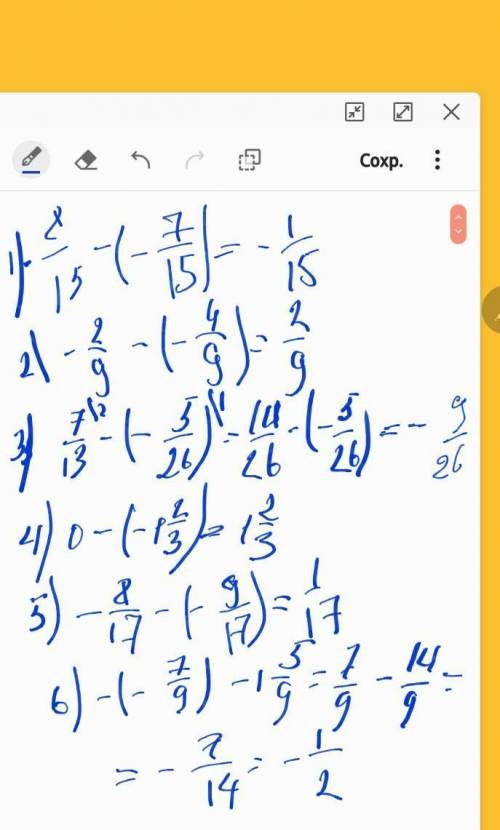 Сохр.
1) -8/15 - (-7/15) = -1/15
2) -2/9 - (-4/9) = 2/9
3) 7/13\2 - (-5/26)\1 = 14/26 - (-5/26) = -9/26
4) 0 - (-1 2/3) = 1 2/3
5) -8/17 - (-9/17) = 1/17
6) -(-7/9) - 1 5/9 = 7/9 - 14/9 =
= -7/14 = -1/2